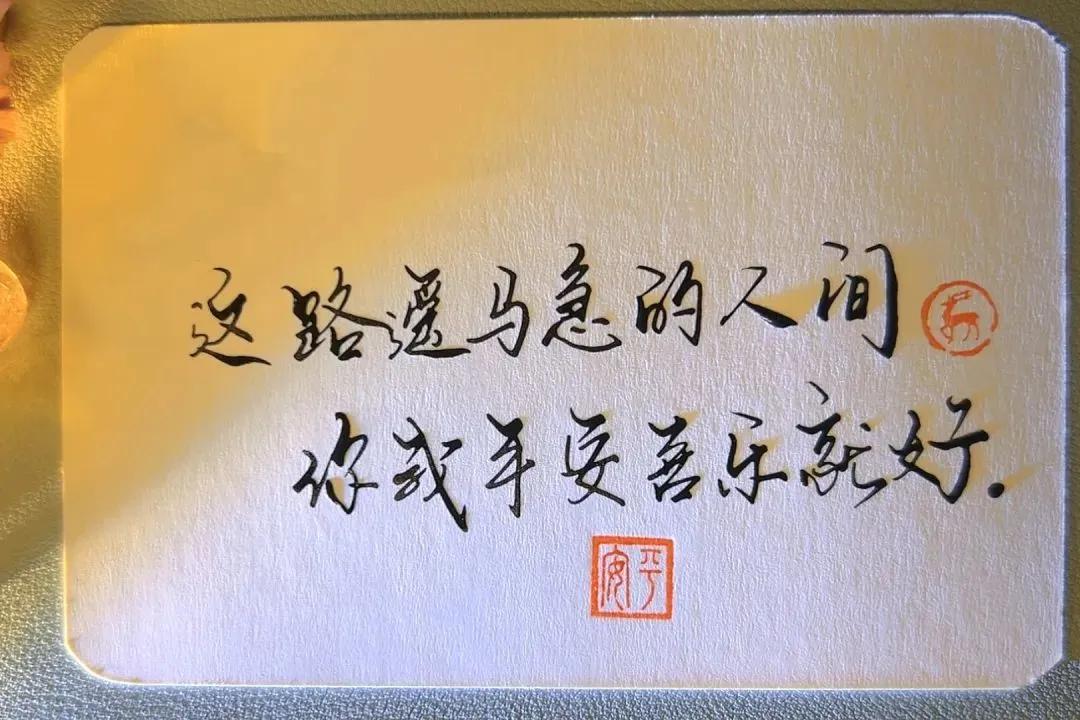 这路遥马急的人间
你我平安喜乐就好.
平安